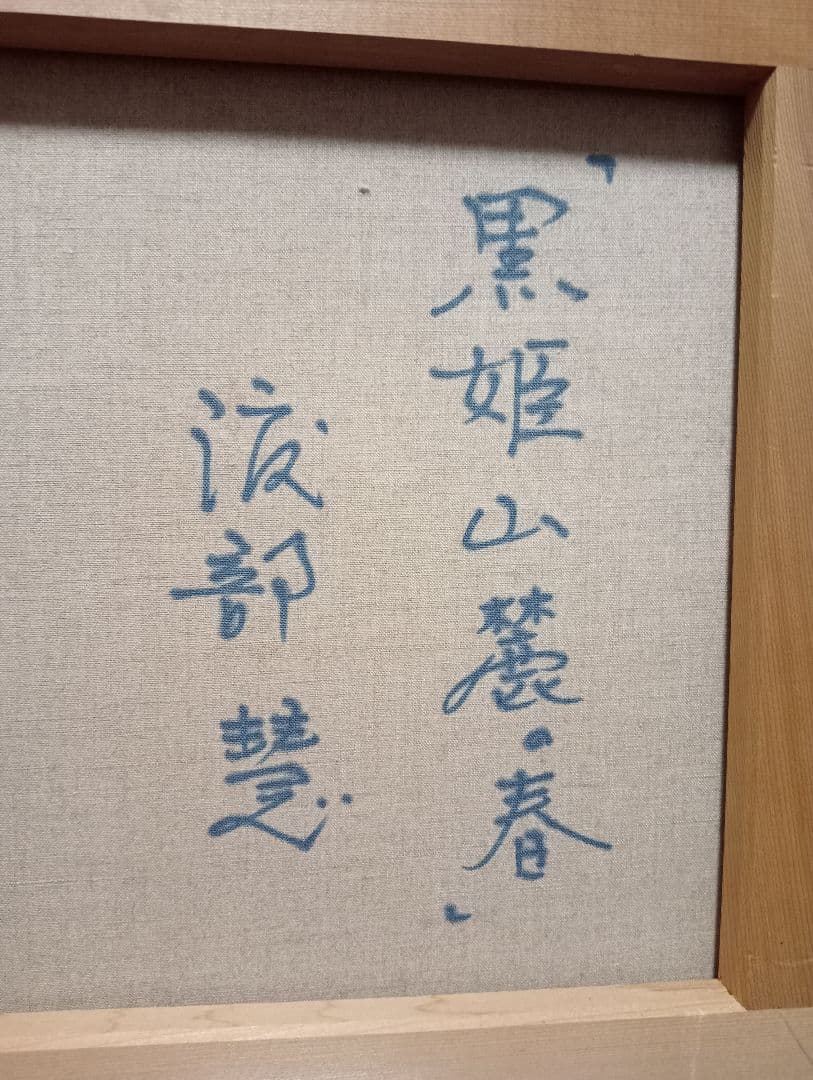 「黒姫山麓・春」
渡部慧